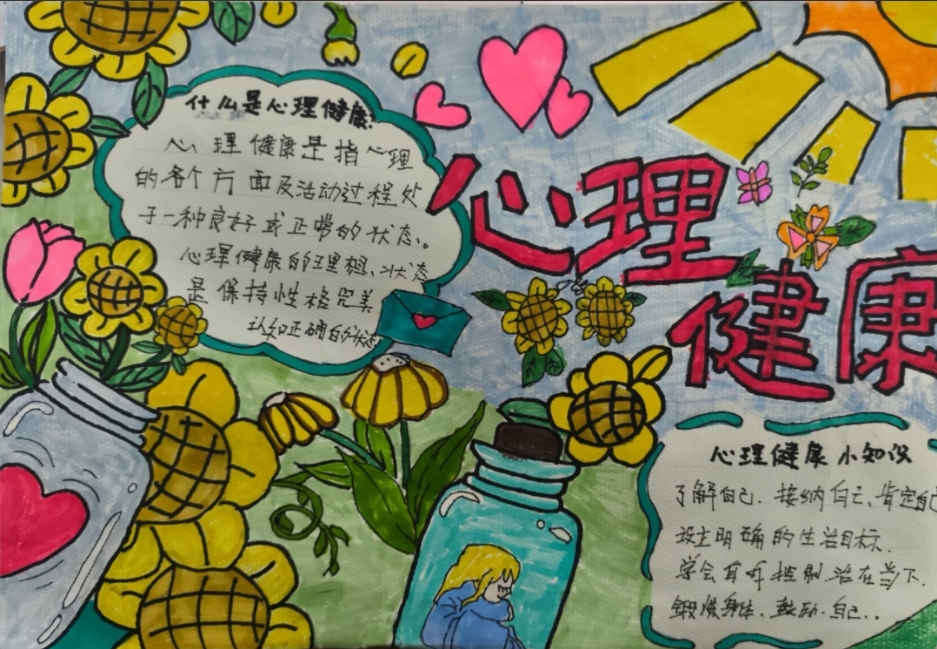 什么是心理健康?
心理健康是指心理
的各个方面及活动过程处
于一种良好或正常的状态。
心理健康的理想状态
是保持性格完美
认知正确的状态
心理
健康
心理健康小知识
了解自己.接纳自己.肯定自己
设立明确的生活目标.
学会自我控制 活在当下.
锻炼身体.鼓励.自己..